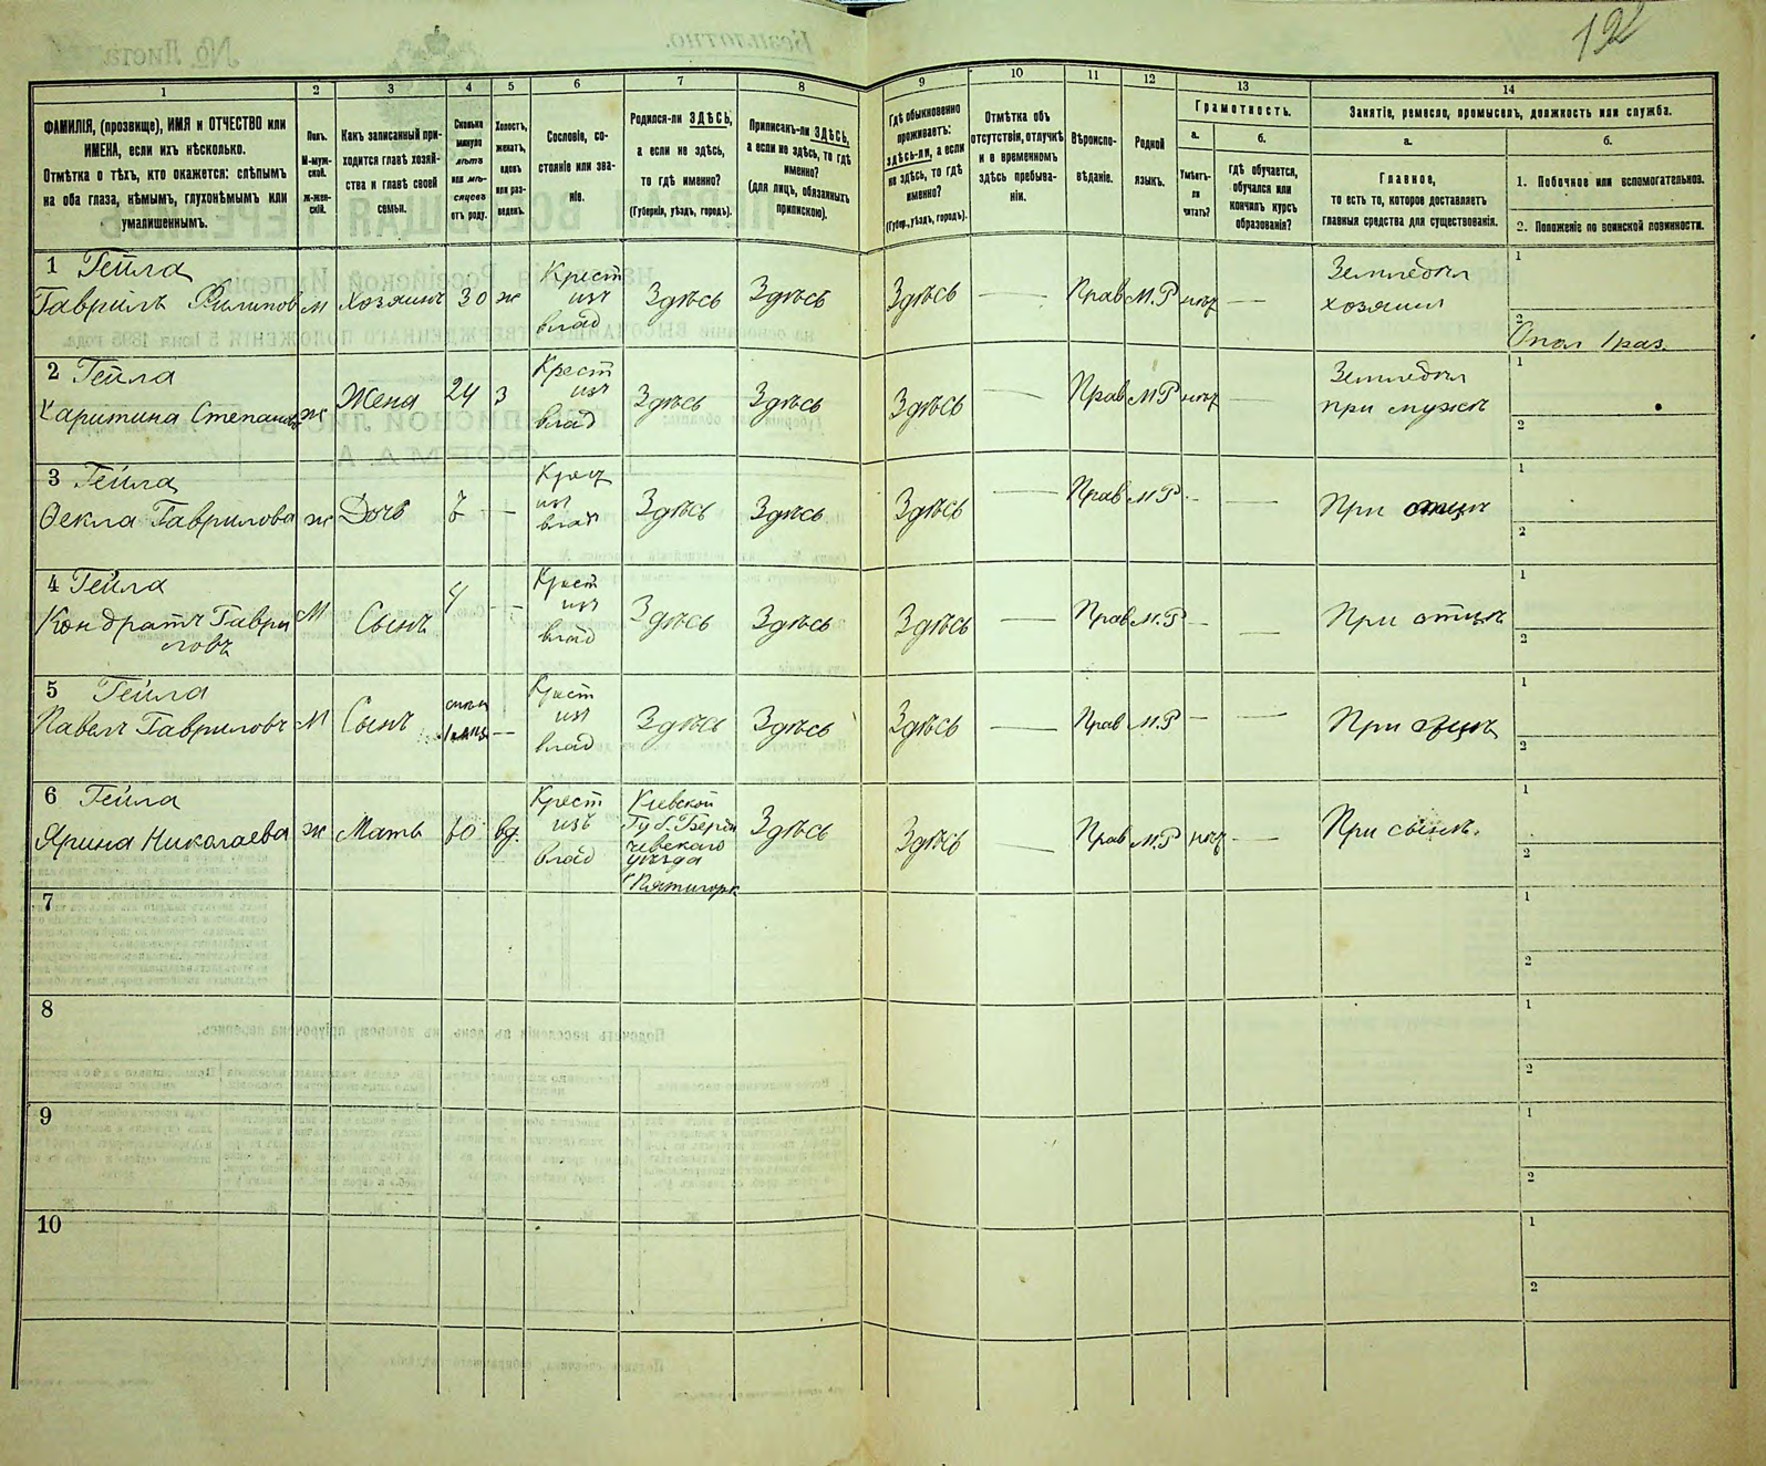 192
1
2
3
4
5
6
7
8
9
10
11
12
13
14
ФАМИЛІЯ, (прозвище), ИМЯ и ОТЧЕСТВО или
ИМЕНА, если ихъ нѣсколько.
Отмѣтка о тѣхъ, кто окажется: слѣпымъ
на оба глаза, нѣмымъ, глухонѣмымъ или
умалишеннымъ.
Полъ.
М-муж-
ской.
Ж-жен-
скій.
Какъ записанный при-
ходится главѣ хозяй-
ства и главѣ своей
семьи.
Сколько
минуло
лѣтъ
или мѣ-
сяцевъ
отъ роду.
Холостъ,
женатъ,
вдовъ
или раз-
веденъ.
Сословіе, со-
стояніе или зва-
ніе.
Родился-ли ЗДѢСЬ,
а если не здѣсь,
то гдѣ именно?
(Губернія, уѣздъ, городъ).
Приписанъ-ли ЗДѢСЬ,
а если не здѣсь, то гдѣ
именно?
(для лицъ, обязанныхъ
припискою).
Гдѣ обыкновенно
проживаетъ:
здѣсь-ли, а если
не здѣсь, то гдѣ
именно?
(Губер., уѣздъ, городъ).
Отмѣтка объ
отсутствіи, отлучкѣ
и о временномъ
здѣсь пребыва-
ніи.
Вѣроиспо-
вѣданіе.
Родной
языкъ.
Грамотность.
а.
Умѣетъ-
ли
читать?
б.
Гдѣ обучается,
обучался или
кончилъ курсъ
образованія?
Занятіе, ремесло, промыселъ, должность или служба.
а.
Главное,
то есть то, которое доставляетъ
главныя средства для существованія.
б.
1. Побочное или вспомогательное.
2. Положеніе по воинской повинности.
1 Гейла
Гаврилъ Филипов м Хозяинъ 30 ж
Крест
изъ
влад
Здѣсь Здѣсь Здѣсь — Прав М.Р нѣт —
Земледѣл
хозяинъ
1
2
Опол 1 раз.
2 Гейла
Харитина Степанов ж Жена 24 з
Крест
изъ
влад
Здѣсь Здѣсь Здѣсь — Прав М.Р нѣт —
Земледѣл
при мужѣ
1
2
3 Гейла
Ѳекла Гаврилова ж Дочь 7 —
Крест
изъ
влад
Здѣсь Здѣсь Здѣсь — Прав М.Р - — При отцѣ
1
2
4 Гейла
Кондратъ Гаври
ловъ
М Сынъ 4 -
Крест
изъ
влад
Здѣсь Здѣсь Здѣсь — Прав М.Р — — При отцѣ
1
2
5 Гейла
Павелъ Гавриловъ М Сынъ —
Крест
изъ
влад
Здѣсь Здѣсь Здѣсь — Прав М.Р — — При отцѣ
1
2
6 Гейла
Ярина Николаева ж Мать 60 вд.
Крест
изъ
влад
Кіевской
Губ. Берди
чевскаго
уѣзда
Пятигорк
Здѣсь Здѣсь — Прав М.Р нѣт — При сынѣ.
1
2
7
1
2
8
1
2
9
1
2
10
1
2